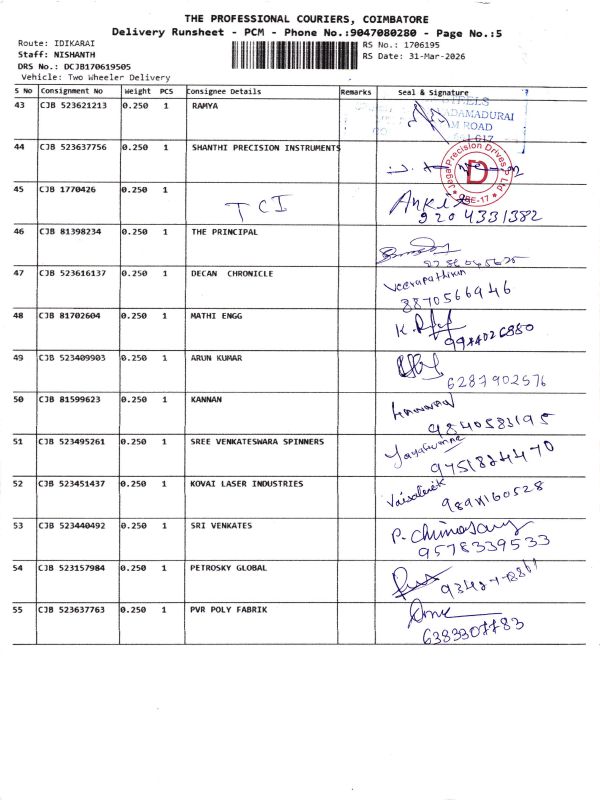 THE PROFESSIONAL COURIERS, COIMBATORE
Delivery Runsheet - PCM - Phone No.:9047080280 - Page No.:5
Route: IDIKARAI
Staff: NISHANTH
DRS No.: DCJB170619505
Vehicle: Two Wheeler Delivery
RS No.: 1706195
RS Date: 31-Mar-2026
S No Consignment No Weight PCS Consignee Details Remarks Seal & Signature
43 CJB 523621213 0.250 1 RAMYA
ADAMADURAI
M ROAD
44 CJB 523637756 0.250 1 SHANTHI PRECISION INSTRUMENTS
Jaga Precision Drives P Ltd
D
CBE-17
45 CJB 1770426 0.250 1 TCI Ankit
9204331382
46 CJB 81398234 0.250 1 THE PRINCIPAL
47 CJB 523616137 0.250 1 DECAN CHRONICLE Veerapathiran
8870566946
48 CJB 81702604 0.250 1 MATHI ENGG
9944026880
49 CJB 523409903 0.250 1 ARUN KUMAR
6287902576
50 CJB 81599623 0.250 1 KANNAN
9840583195
51 CJB 523495261 0.250 1 SREE VENKATESWARA SPINNERS
9751824470
52 CJB 523451437 0.250 1 KOVAI LASER INDUSTRIES
53 CJB 523440492 0.250 1 SRI VENKATES
9578339533
54 CJB 523157984 0.250 1 PETROSKY GLOBAL
55 CJB 523637763 0.250 1 PVR POLY FABRIK
6383307783